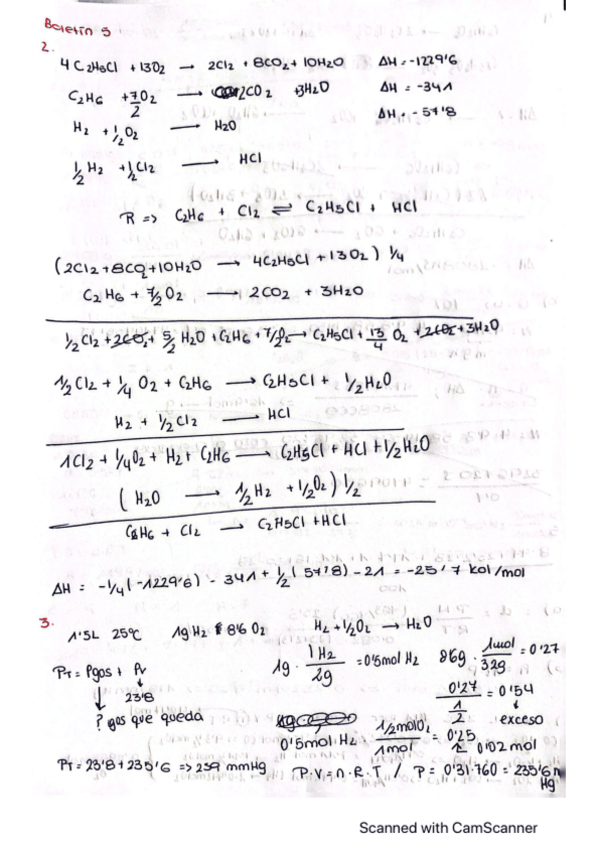 Boletín 5
2.
4 C2H5Cl + 13O2 → 2Cl2 + 8CO2 + 10H2O ΔH = -1229'6
C2H6 + 7/2 O2 → 2CO2 + 3H2O ΔH = -341
H2 + 1/2 O2 → H2O ΔH = -57'8
1/2 H2 + 1/2 Cl2 → HCl
R => C2H6 + Cl2 ⇌ C2H5Cl + HCl
(2Cl2 + 8CO2 + 10H2O → 4C2H5Cl + 13O2) 1/4
C2H6 + 7/2 O2 → 2CO2 + 3H2O
1/2 Cl2 + 2CO2 + 5/2 H2O + C2H6 + 7/2 O2 → C2H5Cl + 13/4 O2 + 2CO2 + 3H2O
1/2 Cl2 + 1/4 O2 + C2H6 → C2H5Cl + 1/2 H2O
H2 + 1/2 Cl2 → HCl
1Cl2 + 1/4 O2 + H2 + C2H6 → C2H5Cl + HCl + 1/2 H2O
(H2O → 1/2 H2 + 1/2 O2) 1/2
C2H6 + Cl2 → C2H5Cl + HCl
ΔH = -1/4(-1229'6) - 341 + 1/2(57'8) - 21 = -25'7 kal/mol
3.
1'5L 25ºC 1g H2 8'6 O2 H2 + 1/2 O2 → H2O
1g · 1 H2 / 2g = 0'5 mol H2 8'6g · 1mol / 32g = 0'27
PT = Pgas + Pv
23'8
0'27 / 1/2 = 0'54
exceso
? gas que queda
0'5 mol H2 1/2 mol O2 / 1 mol = 0'25 0'02 mol
PT = 23'8 + 235'6 => 259 mmHg P·V = n·R·T / P = 0'31·760 = 235'6 m
Hg
Scanned with CamScanner